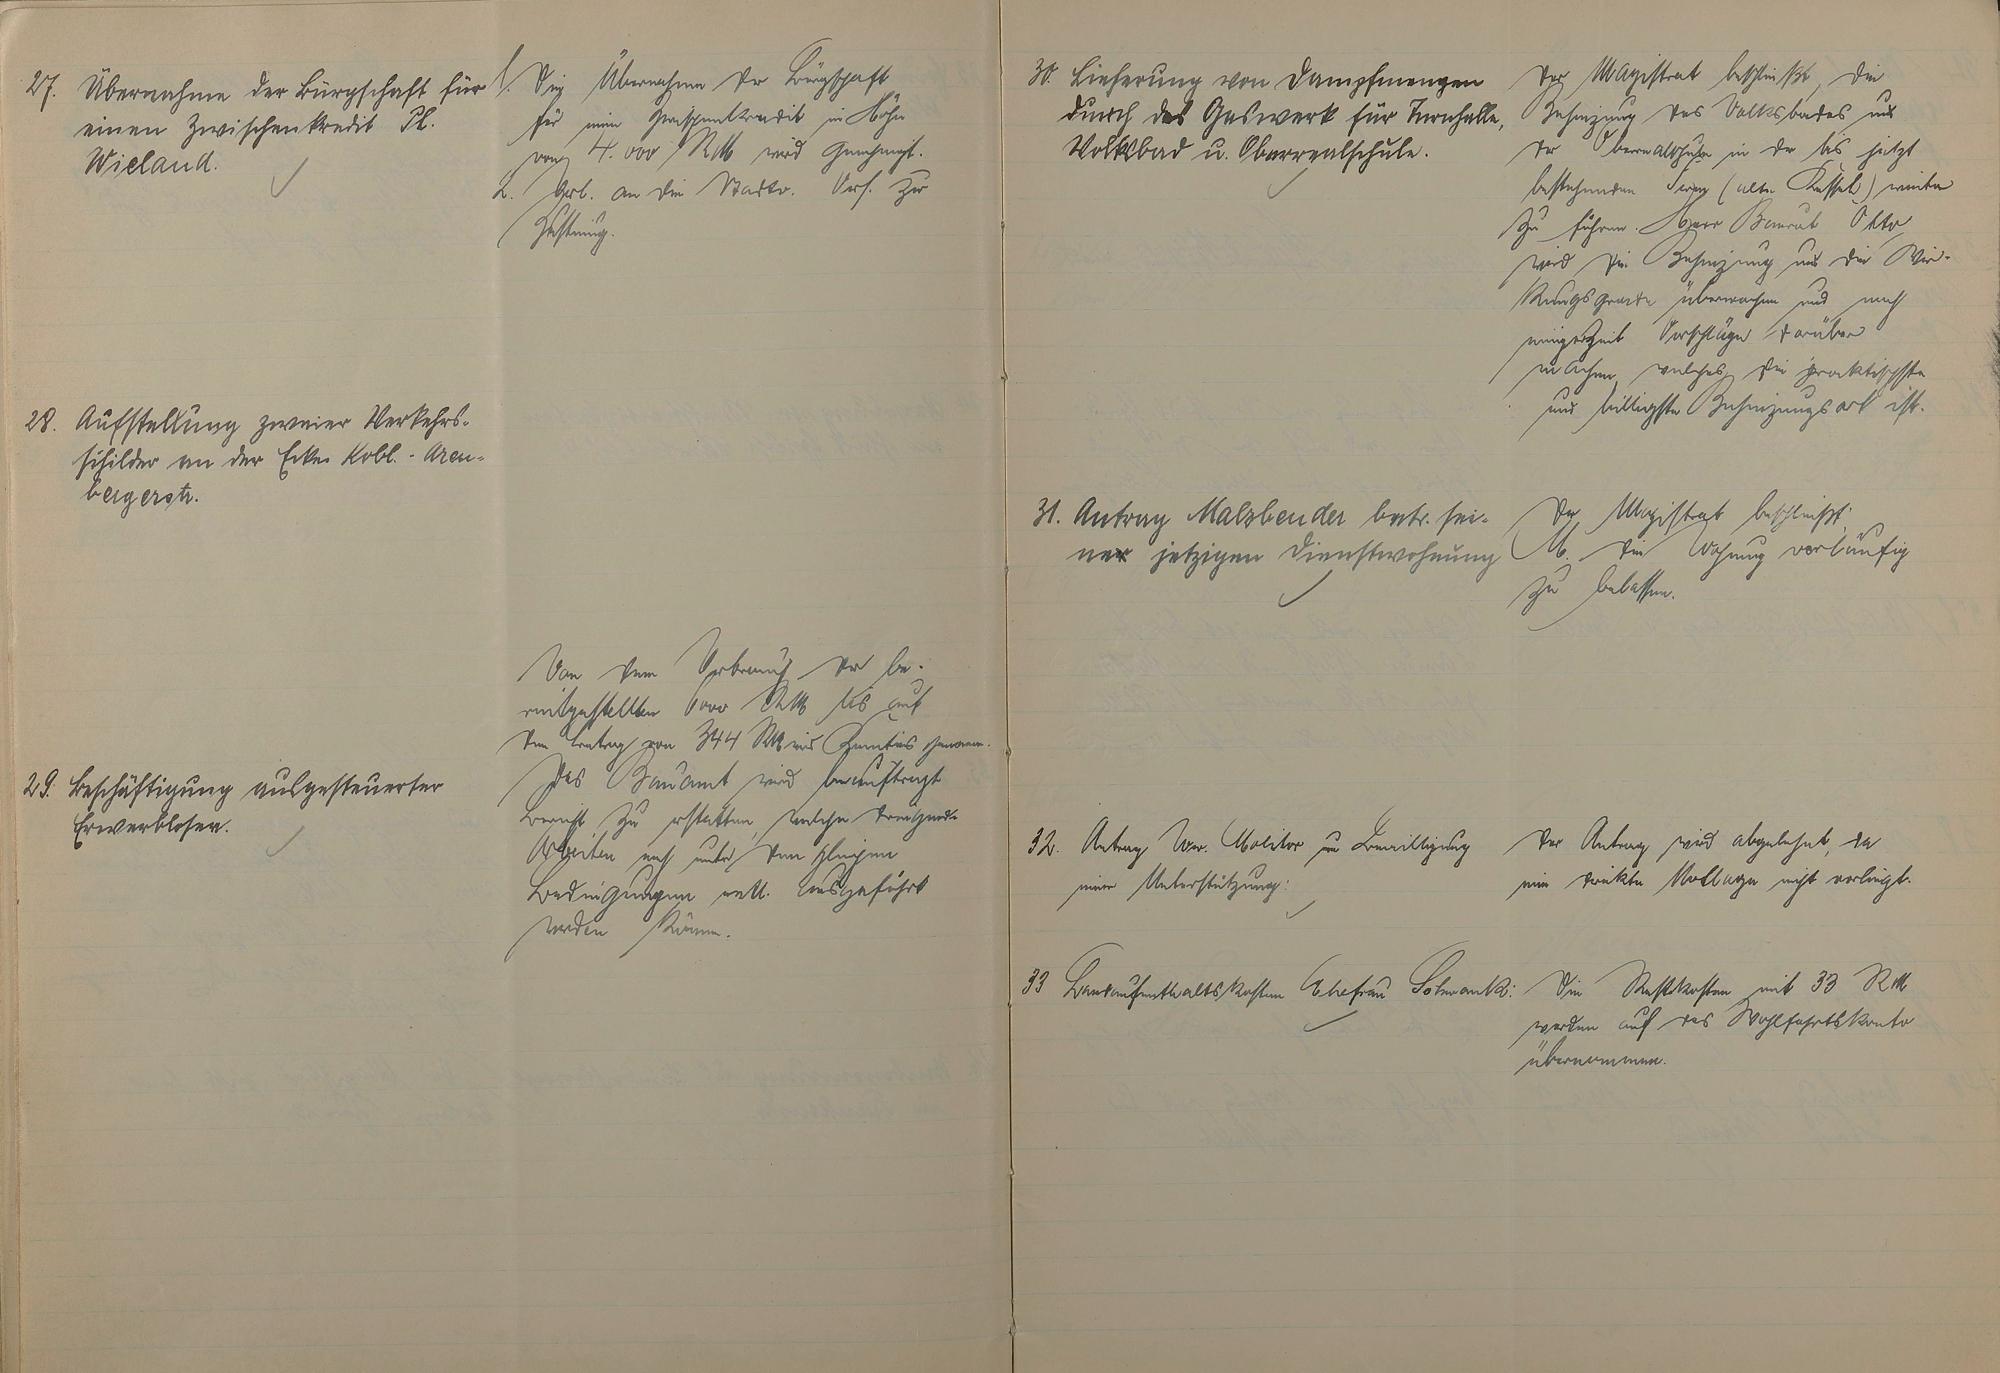 27. Übernahme der Bürgschaft für
einen Zwischenkredit Pl.
Wieland.
1. Die Übernahme der Bürgschaft
für einen Zwischenkredit in Höhe
von 4.000 RM wird genehmigt.
2. Url. an die Stadtv. Vers. zur
Zustimmung.
28. Aufstellung zweier Verkehrs-
schilder an der Ecke Kobl.- Aren-
bergerstr.
29. Beschäftigung ausgesteuerter
Erwerbsloser.
Von dem Verbrauch der be-
reitgestellten 6000 RM bis auf
den Betrag von 344 RM wird Kenntnis genommen.
Das Bauamt wird beauftragt
Bericht zu erstatten, welche dringende
Arbeiten noch unter den gleichen
Bedingungen evtl. ausgeführt
werden können.
30. Lieferung von Dampfmengen
durch das Gaswerk für Turnhalle,
Volksbad u. Oberrealschule.
Der Magistrat beschließt, die
Beheizung des Volksbades und
der Oberrealschule in der bis jetzt
bestehenden Form (alte Kessel) weiter
zu führen. Herr Baurat Otto
wird die Beheizung und die Wir-
kungsgrade überwachen und nach
einiger Zeit Vorschläge darüber
machen, welches die praktischste
und billigste Beheizungsart ist.
31. Antrag Malzbender betr. sei-
ner jetzigen Dienstwohnung
Der Magistrat beschließt:
M. die Wohnung vorläufig
zu belassen.
32. Antrag Ww. Molitor um Bewilligung
einer Unterstützung:
Der Antrag wird abgelehnt, da
eine direkte Notlage nicht vorliegt.
33 Landaufenthaltskosten Ehefrau Schwank:
Die Restkosten mit 33 RM
werden auf das Wohlfahrtskonto
übernommen.